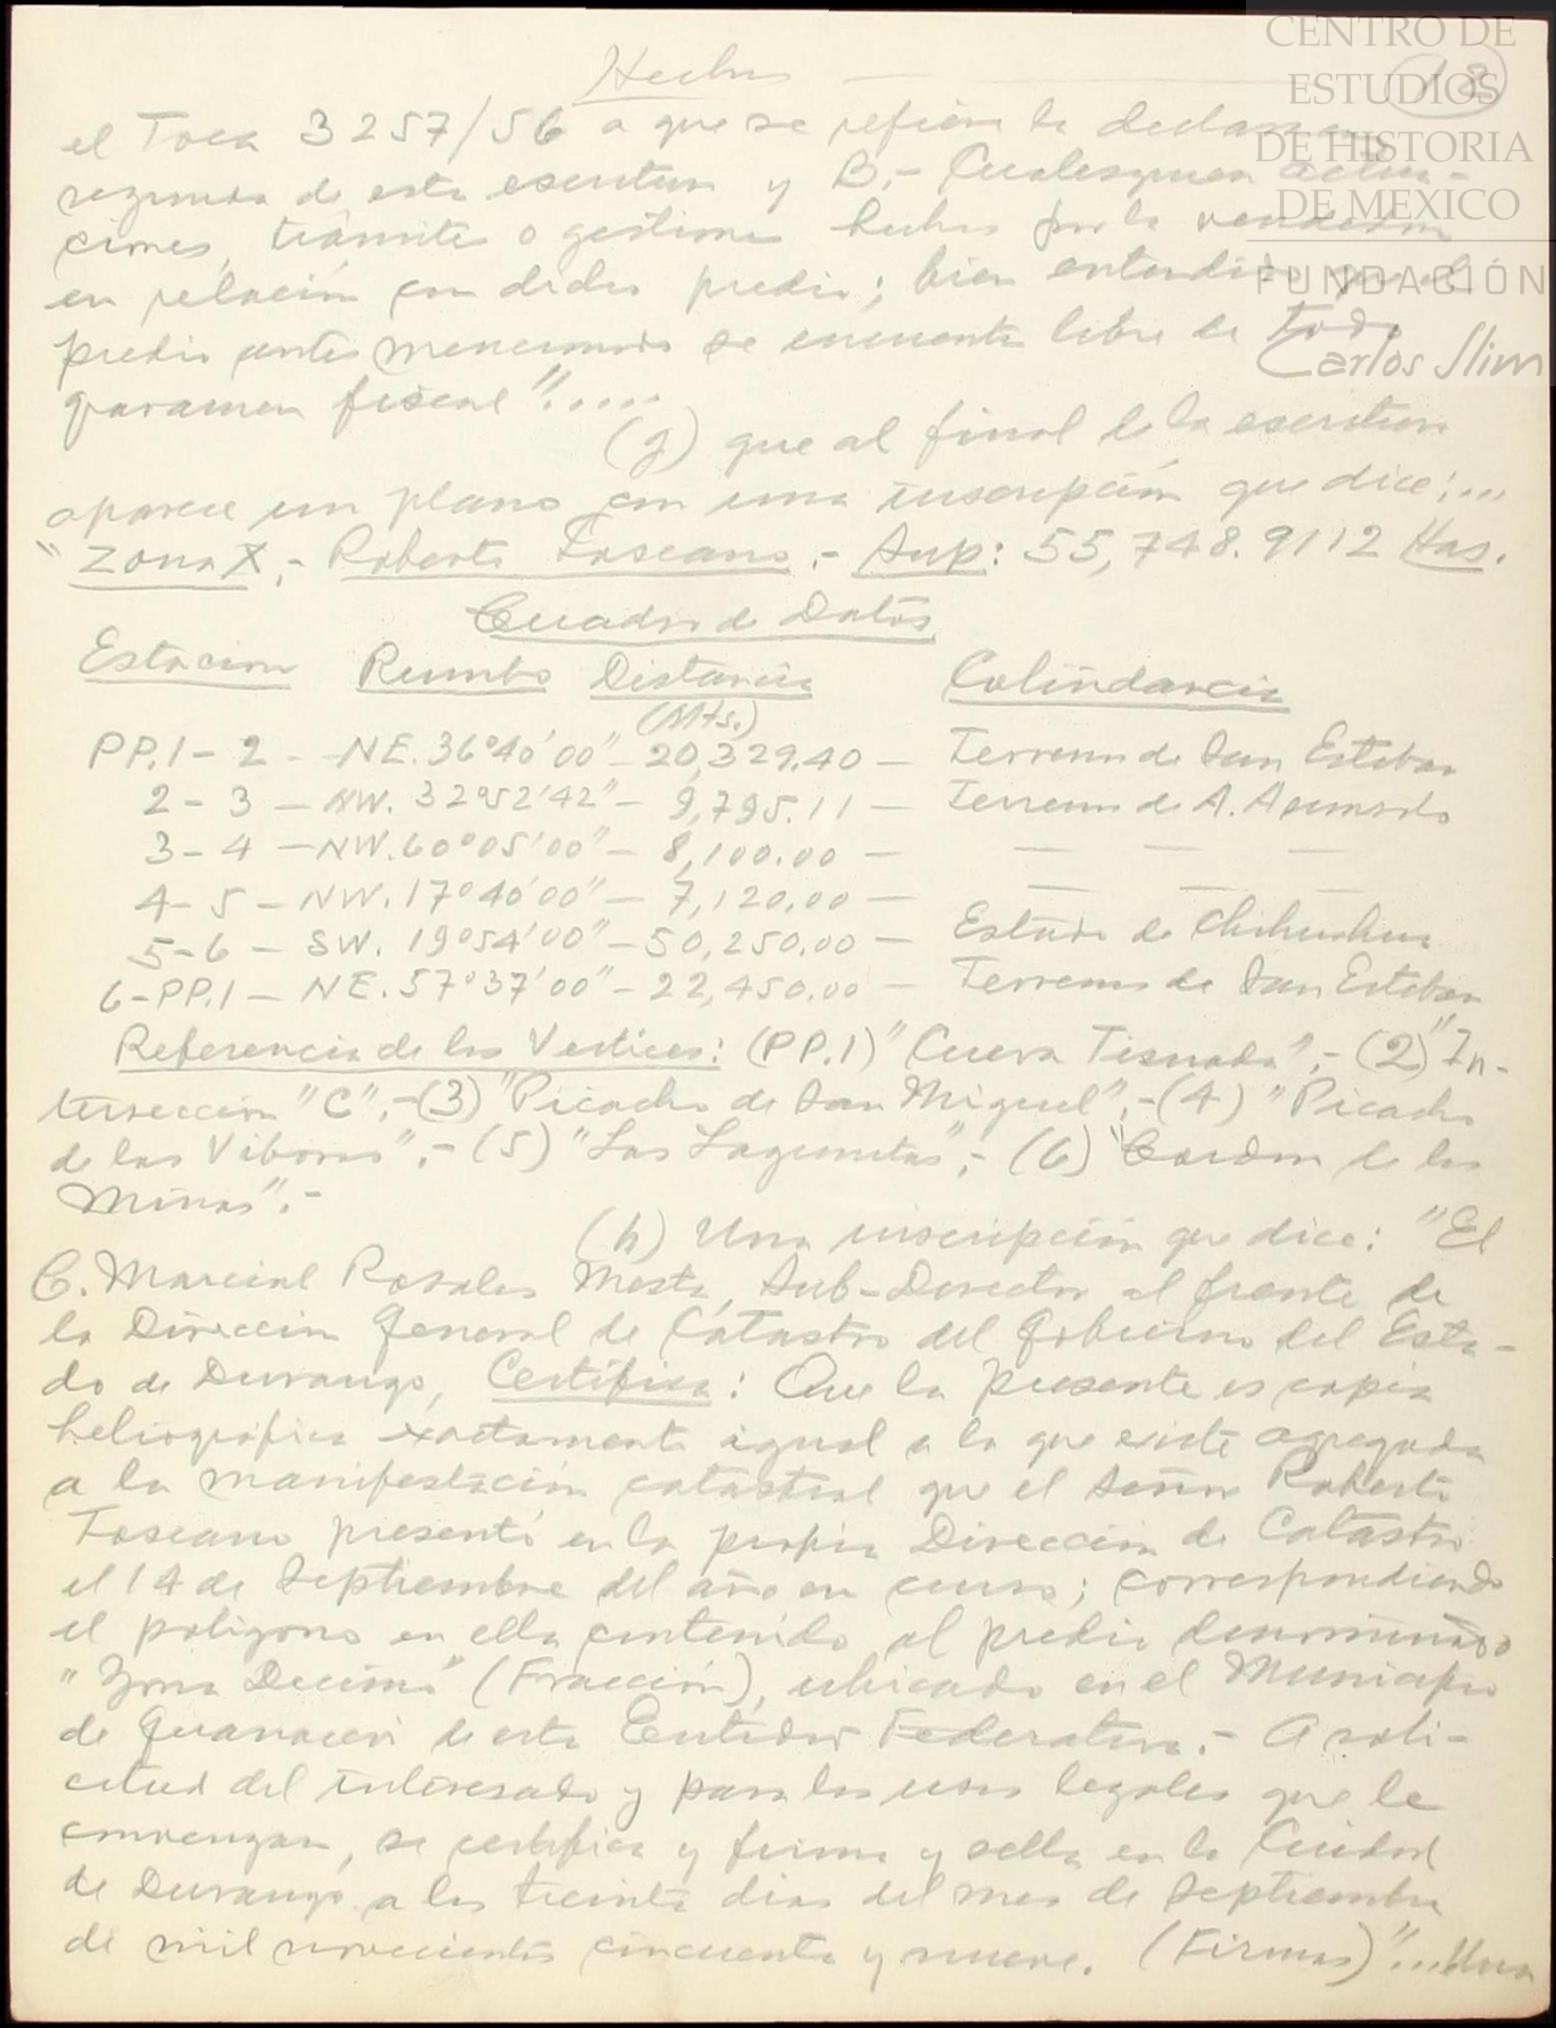 Hechos
18
CENTRO DE
ESTUDIOS
DE HISTORIA
DE MEXICO
FUNDACIÓN
Carlos Slim
el Toca 3257/56 a que se refiere la declaración
segunda de esta escritura y B.- Cualesquiera actua-
ciones, trámites o gestiones hechas por la vendedora
en relación con dicho predio; bien entendido que el
predio antes mencionado se encuentra libre de todo
gravamen fiscal".....
(g) que al final de la escritura
aparece un plano con una inscripción que dice:...
"Zona X.- Roberto Toscano.- Sup: 55,748.9112 Has.
Cuadro de Datos
Estacion Rumbo Distancia Colindancia
(Mts.)
PP.1 - 2 - NE. 36°40'00" - 20,329.40 - Terrenos de San Esteban
2 - 3 - NW. 32°52'42" - 9,795.11 - Terrenos de A. Asunsolo
3 - 4 - NW. 60°05'00" - 8,100.00 - — — —
4 - 5 - NW. 17°40'00" - 7,120.00 - — — —
5 - 6 - SW. 19°54'00" - 50,250.00 - Estado de Chihuahua
6 - PP.1 - NE. 57°37'00" - 22,450.00 - Terrenos de San Esteban
Referencia de los Vertices: (PP.1) "Cueva Tisnada".- (2) "In-
tersección "C".- (3) "Picacho de San Miguel".- (4) "Picacho
de las Viboras".- (5) "Las Lagunitas".- (6) "Cordon de las
Minas".-
(h) Una inscripción que dice: "El
C. Marcial Rosales Mesta, Sub-Director al frente de
la Dirección General de Catastro del Gobierno del Esta-
do de Durango, Certifica: Que la presente es copia
heliográfica exactamente igual a la que existe agregada
a la manifestación catastral que el Señor Roberto
Toscano presentó en la propia Dirección de Catastro
el 14 de Septiembre del año en curso; correspondiendo
el poligono en ella contenido al predio denominado
"Zona Decima" (Fracción), ubicado en el Municipio
de Guanaceví de esta Entidad Federativa.- A soli-
citud del interesado y para los usos legales que le
convengan, se certifica y firma y sella en la Ciudad
de Durango a los treinta dias del mes de Septiembre
de mil novecientos cincuenta y nueve. (Firmas)"... Una